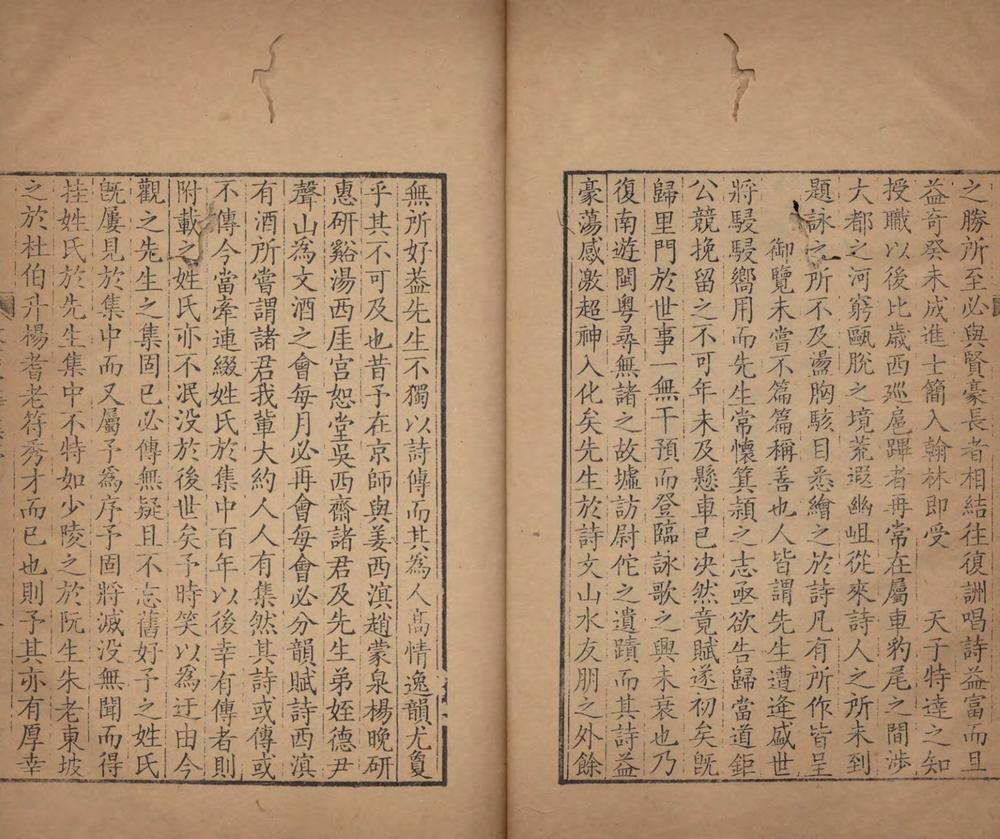 之勝所至必與賢豪長者相結往復詶唱詩益富而且
益奇癸未成進士簡入翰林即受　天子特達之知
授職以後比歲西廵扈蹕者再常在屬車豹尾之間涉
大都之河窮甌脫之境荒遐幽岨從來詩人之所未到
題詠之所不及盪胸駭目悉繪之於詩凡有所作皆呈
御覽未嘗不篇篇稱善也人皆謂先生遭逢盛世
將駸駸嚮用而先生常懷箕潁之志亟欲告歸當道鉅
公競挽留之不可年未及懸車已決然竟賦遂初矣旣
歸里門於世事一無干預而登臨詠歌之興未衰也乃
復南遊閩粵尋無諸之故墟訪尉佗之遺蹟而其詩益
豪蕩感激超神入化矣先生於詩文山水友朋之外餘
無所好葢先生不獨以詩傳而其爲人高情逸韻尤夐
乎其不可及也昔予在京師與姜西溟趙蒙泉楊晚研
惠研谿湯西厓宮恕堂吳西齋諸君及先生弟姪德尹
聲山爲文酒之會每月必再會每會必分韻賦詩西溟
有酒所嘗謂諸君我輩大約人人有集然其詩或傳或
不傳今當牽連綴姓氏於集中百年以後幸有傳者則
附載之姓氏亦不泯没於後世矣予時笑以爲迂由今
觀之先生之集固已必傳無疑且不忘舊好予之姓氏
旣屢見於集中而又屬予爲序予固將滅没無聞而得
挂姓氏於先生集中不特如少陵之於阮生朱老東坡
之於杜伯升楊耆老符秀才而已也則予其亦有厚幸